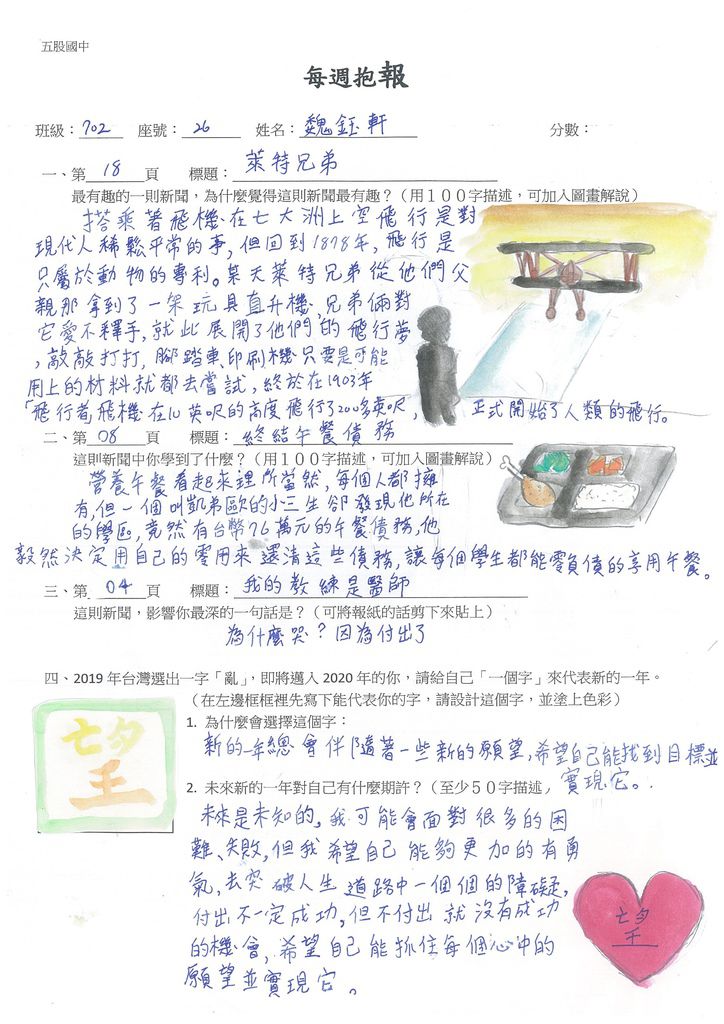 五股國中
每週抱報
班級：702 座號：26 姓名：魏鈺軒 分數：
一、第18頁 標題：萊特兄弟
最有趣的一則新聞，為什麼覺得這則新聞最有趣？（用１００字描述，可加入圖畫解說）
搭乘著飛機在七大洲上空飛行是對
現代人稀鬆平常的事，但回到1878年，飛行是
只屬於動物的專利。某天萊特兄弟從他們父
親那拿到了一架玩具直升機，兄弟倆對
它愛不釋手，就此展開了他們的飛行夢
，敲敲打打，腳踏車、印刷機只要是可能
用上的材料就都去嘗試，終於在1903年
「飛行者」飛機在10英呎的高度飛行了200多英呎，正式開始了人類的飛行。
二、第08頁 標題：終結午餐債務
這則新聞中你學到了什麼？（用１００字描述，可加入圖畫解說）
營養午餐看起來理所當然，每個人都擁
有，但一個叫凱弟歐的小三生卻發現他所在
的學區，竟然有台幣76萬元的午餐債務，他
毅然決定用自己的零用來還清這些債務，讓每個學生都能零負債的享用午餐。
三、第04頁 標題：我的教練是醫師
這則新聞，影響你最深的一句話是？（可將報紙的話剪下來貼上）
為什麼哭？因為付出了
四、2019年台灣選出一字「亂」，即將邁入2020年的你，請給自己「一個字」來代表新的一年。
（在左邊框框裡先寫下能代表你的字，請設計這個字，並塗上色彩）
望
1. 為什麼會選擇這個字：
新的一年總會伴隨著一些新的願望，希望自己能找到目標並
實現它。
2. 未來新的一年對自己有什麼期許？（至少５０字描述，
未來是未知的，我可能會面對很多的困
難、失敗，但我希望自己能夠更加的有勇
氣，去突破人生道路中一個個的障礙，
付出不一定成功，但不付出就沒有成功
的機會，希望自己能抓住每個心中的
願望並實現它。
望